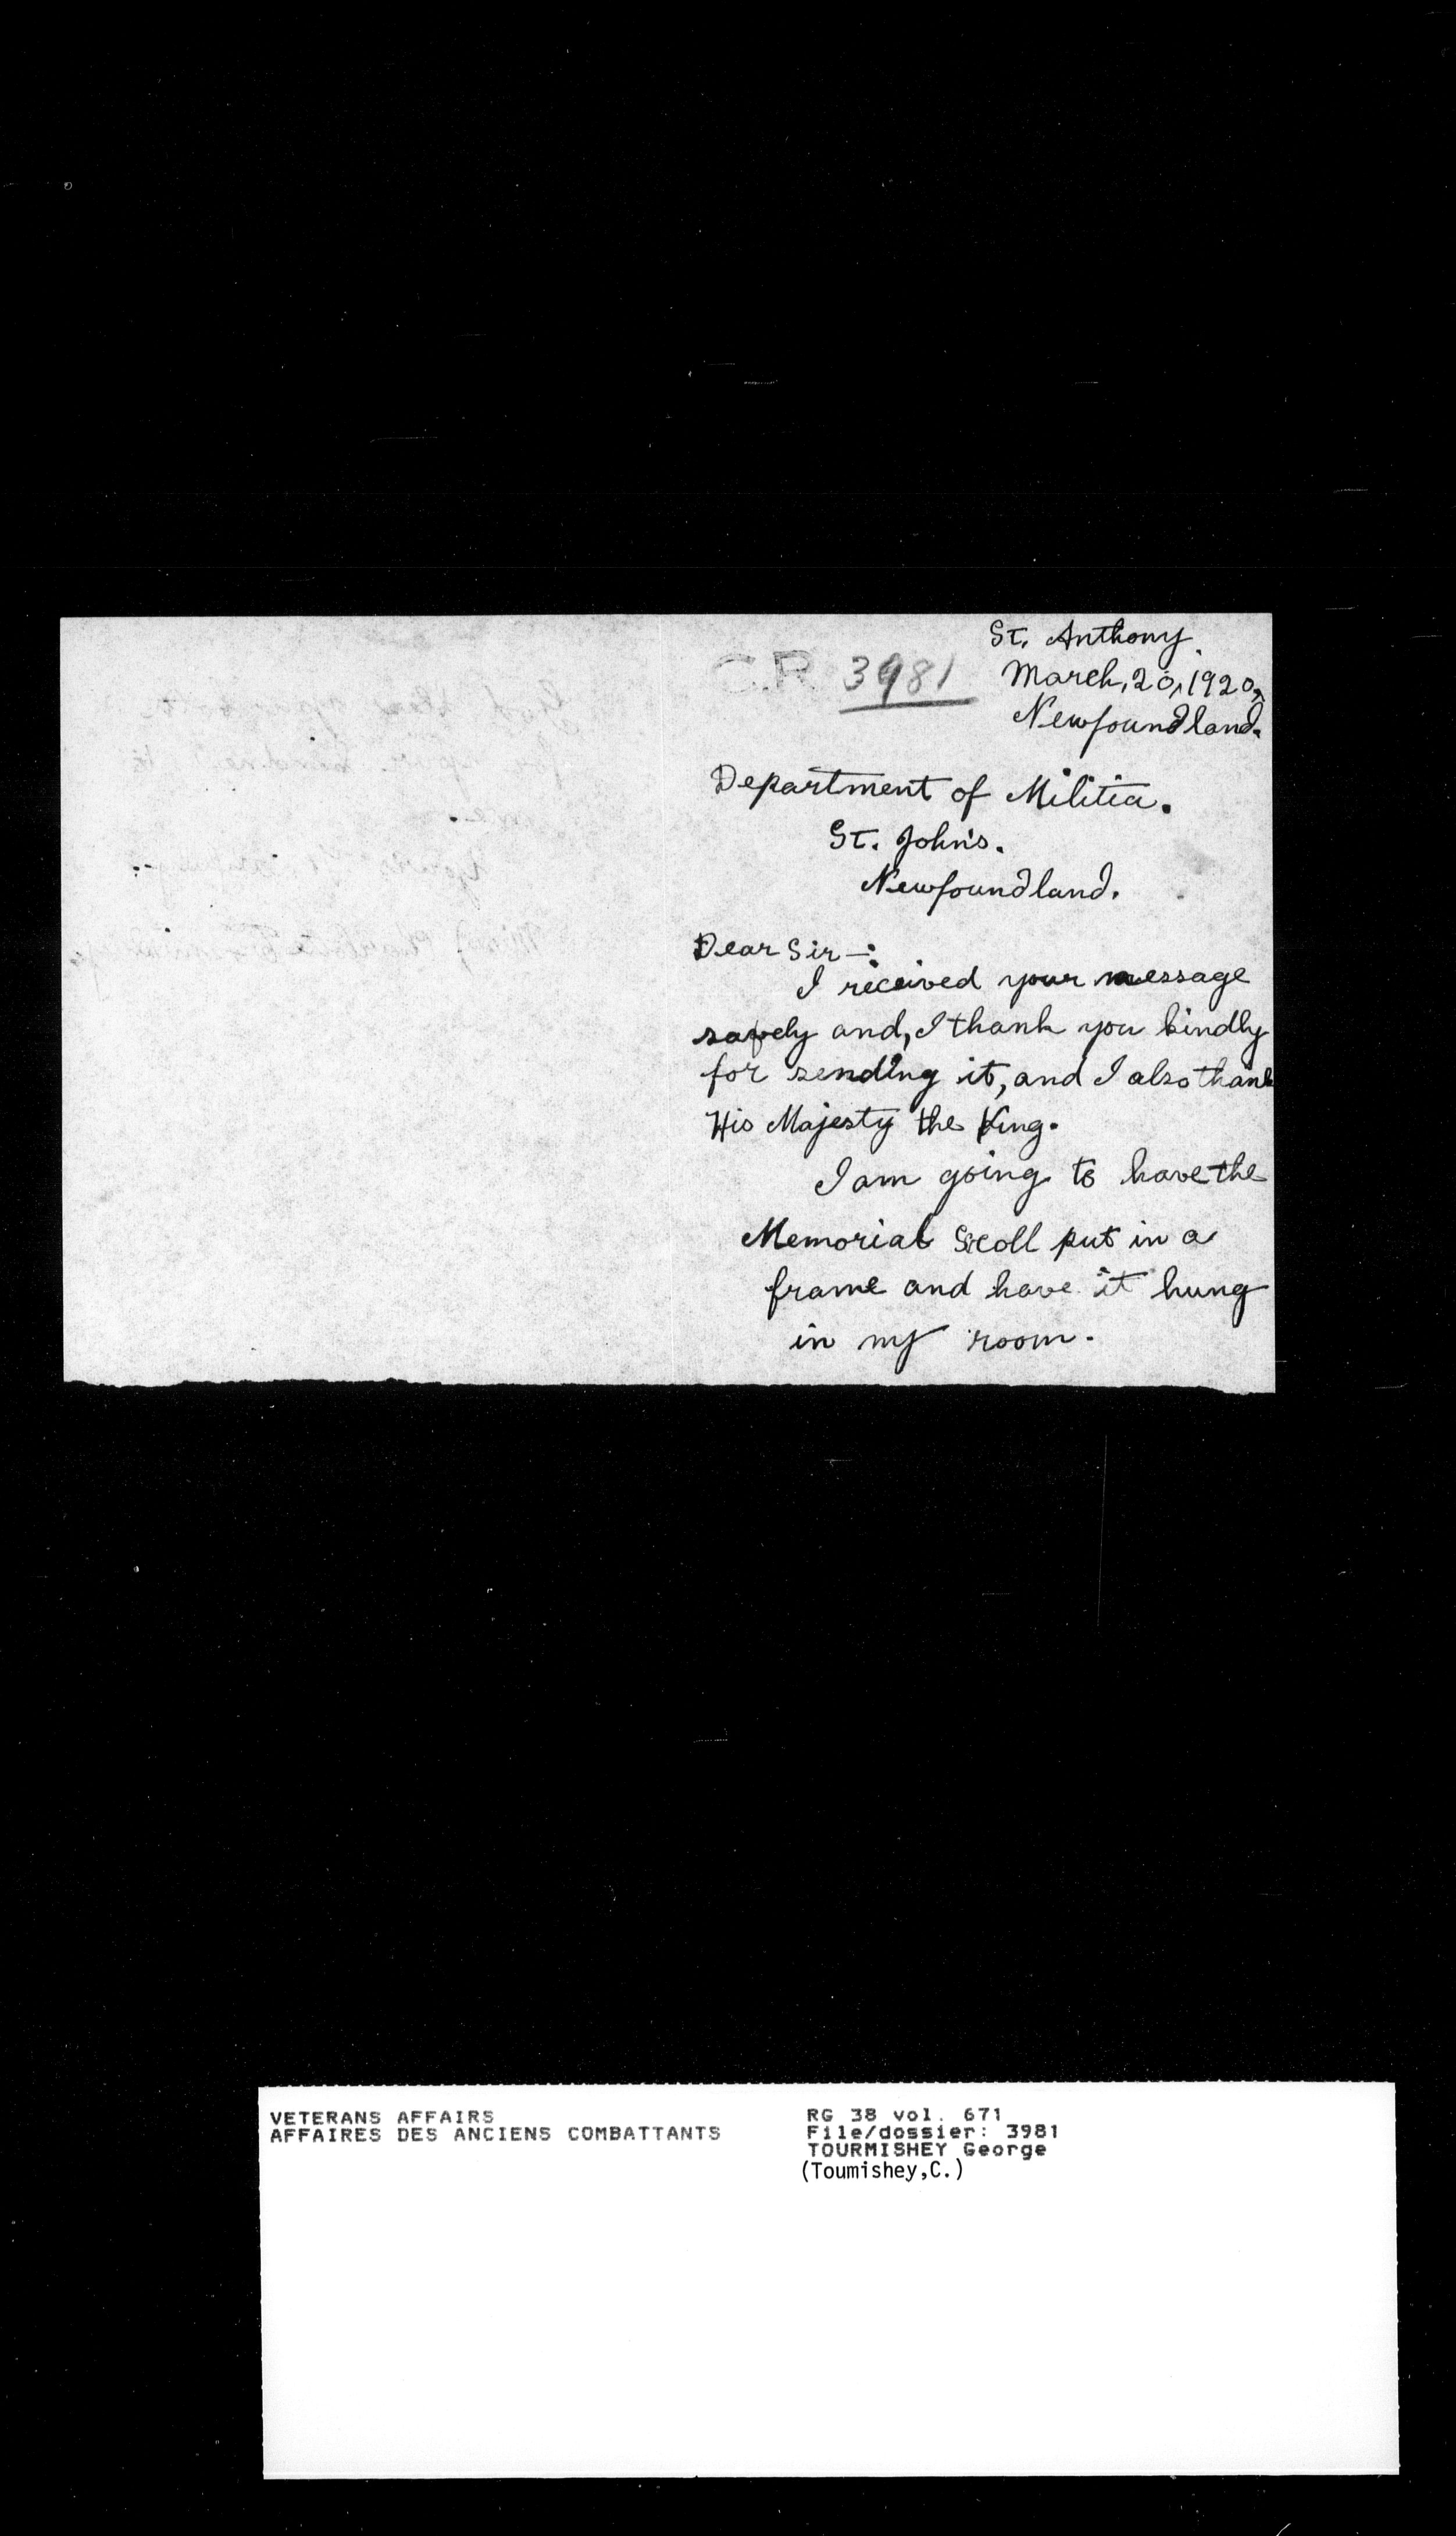 C.R. 3981
St. Anthony.
March, 20, 1920,
Newfoundland.
Department of Militia.
St. John's.
Newfoundland.
Dear Sir—:
I received your message
safely and, I thank you kindly
for sending it, and I also thank
His Majesty the King.
I am going to have the
Memorial Scoll put in a
frame and have it hung
in my room.
VETERANS AFFAIRS
AFFAIRES DES ANCIENS COMBATTANTS
RG 38 vol. 671
File/dossier: 3981
TOURMISHEY George
(Toumishey,C.)